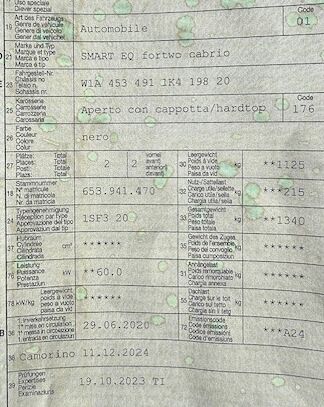 Uso speciale
Diever spezial
19 Art des Fahrzeugs
Genre de véhicule
Genere di veicolo
Gener dal vehichel
Automobile
Code
01
Marke und Typ
Marque et type
Marca e tipo
Marca e tip
SMART EQ fortwo cabrio
Fahrgestell-Nr.
Châssis no
Telaio n.
Schassis nr.
W1A 453 491 1K4 198 20
25 Karosserie
Carrosserie
Carrozzeria
Carossaria
Aperto con cappotta/hardtop
Code
176
26 Farbe
Couleur
Colore
Color
nero
27 Plätze: Total
Places: Total
Posti: Total
Plazs: Total
2 2
vorne/
avant/
anteriori/
davant
30 Leergewicht
Poids à vide
Peso a vuoto
Paisa da vid
kg
**1125
18 Stammnummer
N° matricule
N. matricola
Nr. da matricla
653.941.470
32 Nutz-/Sattellast
Charge utile/sellette
Carico utile/sella
kg
***215
24 Typengenehmigung
Réception par type
Approvazione del tipo
Approvaziun dal tip
1SF3 20
33 Gesamtgewicht
Poids total
Peso totale
Paisa totala
kg
**1340
37 Hubraum
Cylindrée
Cilindrata
cm³
******
Gewicht des Zuges
Poids de l'ensemble
Peso del convoglio
kg
******
76 Leistung
Puissance
Potenza
Prestaziun
kW
**60.0
31 Anhängelast
Poids remorquable
Carico rimorchiabile
kg
******
78 kW/kg
Leergewicht
poids à vide
peso a vuoto
******
35 Dachlast
Charge sur le toit
Carico sul tetto
kg
******
B 36 1. Inverkehrsetzung
1re mise en circulation
1a messa in circolazione
29.06.2020
72 Emissionscode
Code émissions
Codice emissioni
***A24
38 Camorino 11.12.2024
39 Prüfungen
Expertises
Perizie
Examinaziuns
19.10.2023 TI